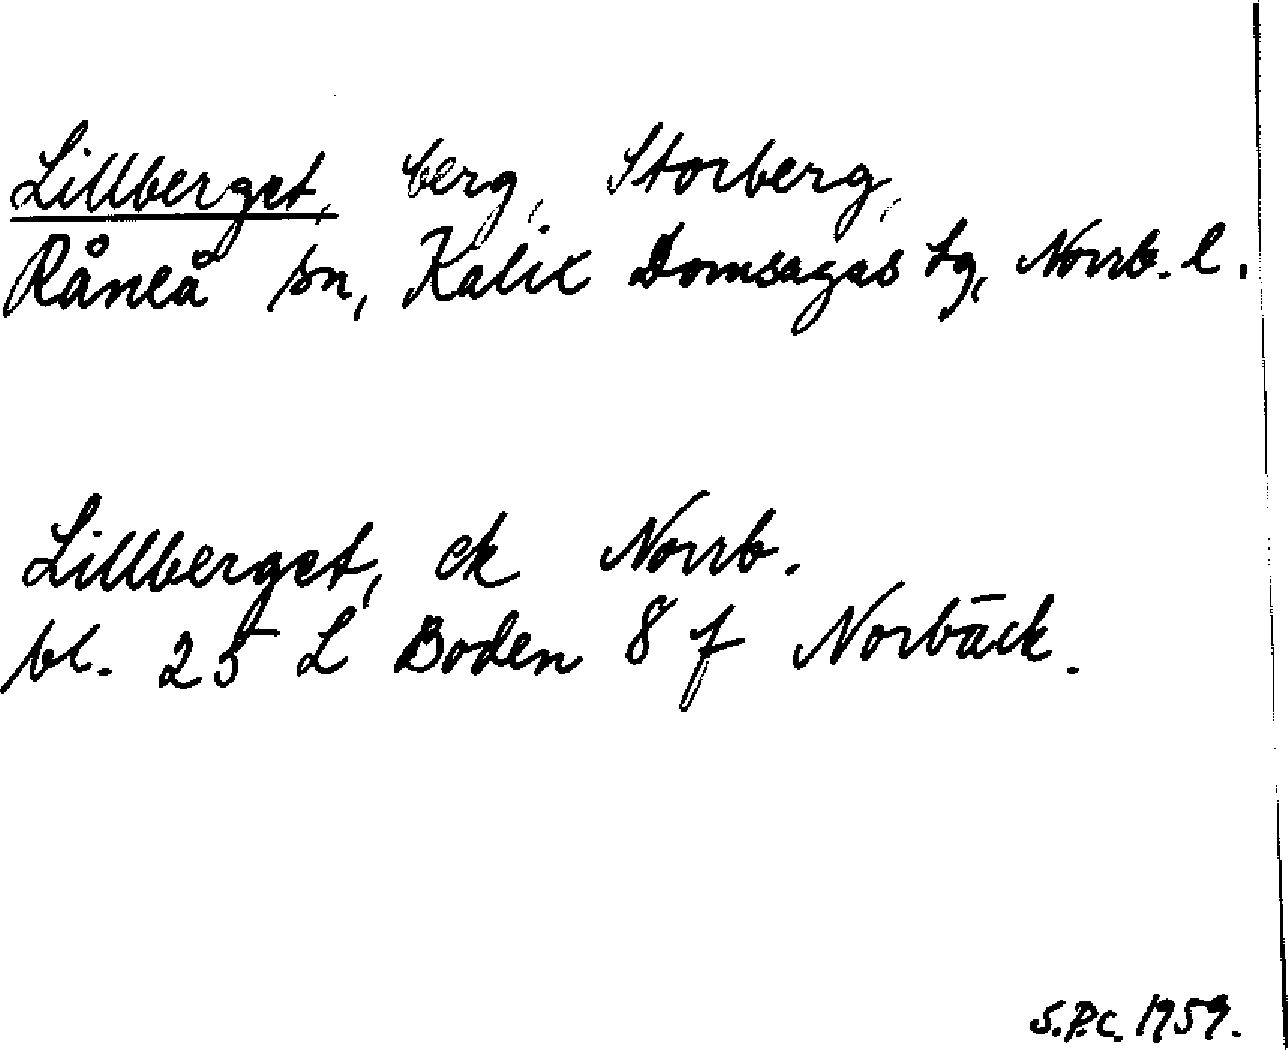 Lillberget, berg, Storberg,
Råneå sn, Kalix Domsagas tg, Norrb. l.
Lillberget, ek Norrb.
bl. 25 L Boden 8 f Norbäck.
S.P.C. 1959.